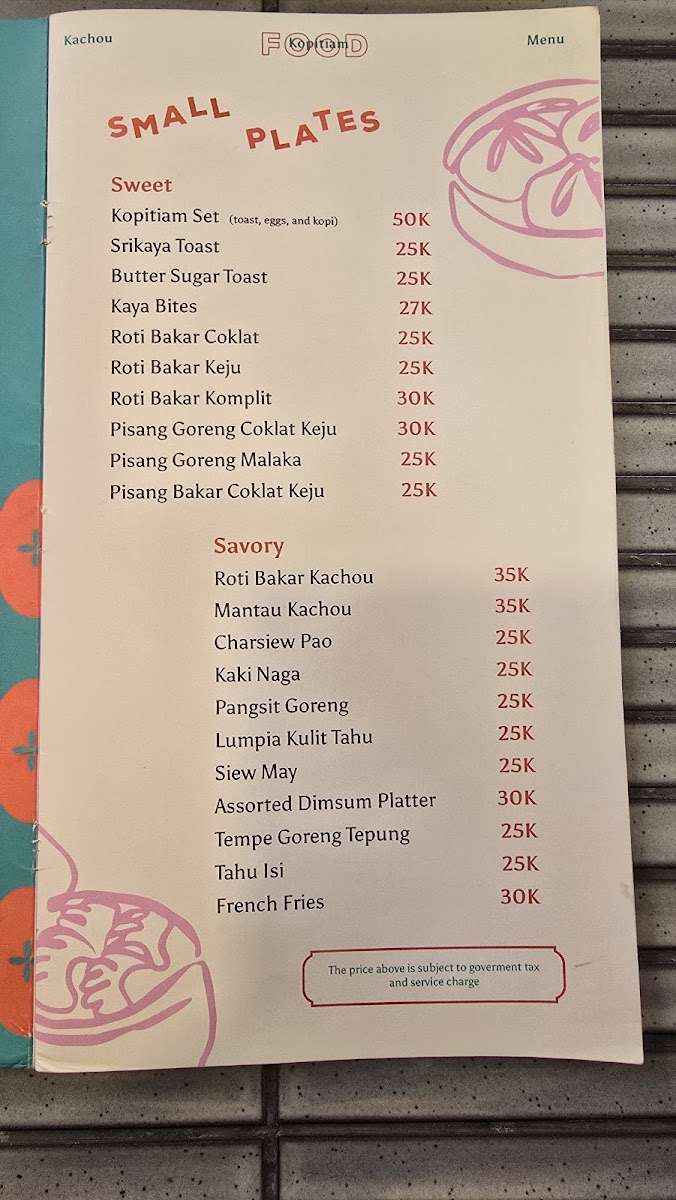 Kachou
FOOD
Kopitiam
Menu
SMALL
PLATES
Sweet
Kopitiam Set (toast, eggs, and kopi) 50K
Srikaya Toast 25K
Butter Sugar Toast 25K
Kaya Bites 27K
Roti Bakar Coklat 25K
Roti Bakar Keju 25K
Roti Bakar Komplit 30K
Pisang Goreng Coklat Keju 30K
Pisang Goreng Malaka 25K
Pisang Bakar Coklat Keju 25K
Savory
Roti Bakar Kachou 35K
Mantau Kachou 35K
Charsiew Pao 25K
Kaki Naga 25K
Pangsit Goreng 25K
Lumpia Kulit Tahu 25K
Siew May 25K
Assorted Dimsum Platter 30K
Tempe Goreng Tepung 25K
Tahu Isi 25K
French Fries 30K
The price above is subject to goverment tax
and service charge